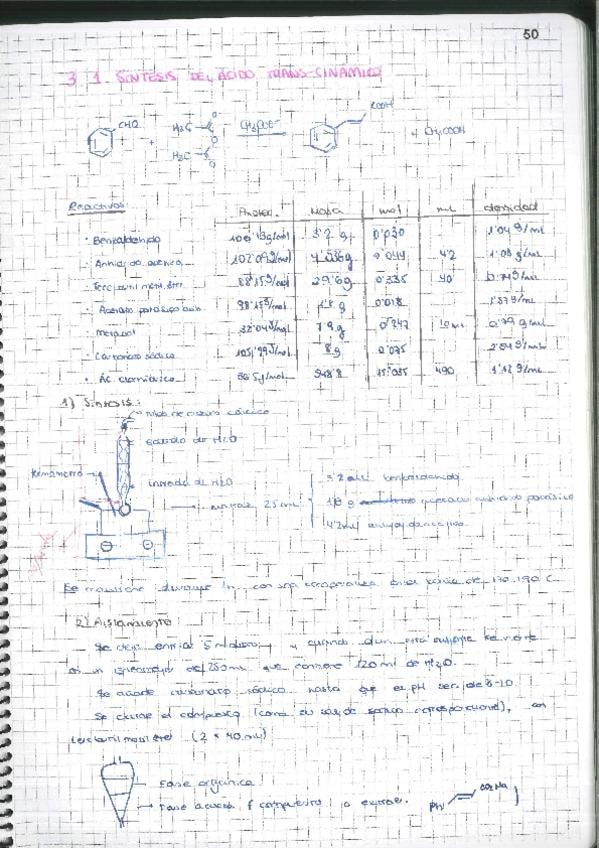 50
3.1. SÍNTESIS DEL ÁCIDO TRANS-CINÁMICO
CHO + H3C H3C O O O CH3COO- COOH + CH3COOH
Reactivos:
Pmolec. Masa mol mL densidad
· Benzaldehído 106'13g/mol 3'2 g 0'030 1'04 g/mL
· Anhídrido acético 102'09g/mol 0'044 4'2 1'08 g/mL
· Tercbutil metil éter 88'15g/mol 29'6g 0'335 40 0'74g/mL
· Acetato potásico 98'15g/mol 1'8 g 0'018 1'57g/mL
· Metanol 32'04g/mol 7'9 g 0'247 10 0'79 g/mL
· Carbonato sódico 105'99g/mol 8g 0'075
· Ac. clorhídrico 36'5g/mol 490 1'12 g/mL
1) Síntesis:
tubo de cloruro cálcico
salida de H2O
termómetro
entrada de H2O
matraz 25 mL
3'2 benzaldehído
1'8 g potásico
4'2ml anhídrido acético
Se mantiene durante 1h con una temperatura entre 170-190 C
2) Aislamiento
Se deja enfriar 5 minutos y cuando aún está caliente se vierte
en un de 250mL que contiene 120 ml de H2O.
Se añade carbonato sódico hasta que el pH sea de 8-10.
Se extrae el compuesto (como su sal de sodio correspondiente), con
tercbutil metil éter (2 x 40 ml)
Fase orgánica
Fase acuosa ( compuesto a extraer. Ph CO2Na )